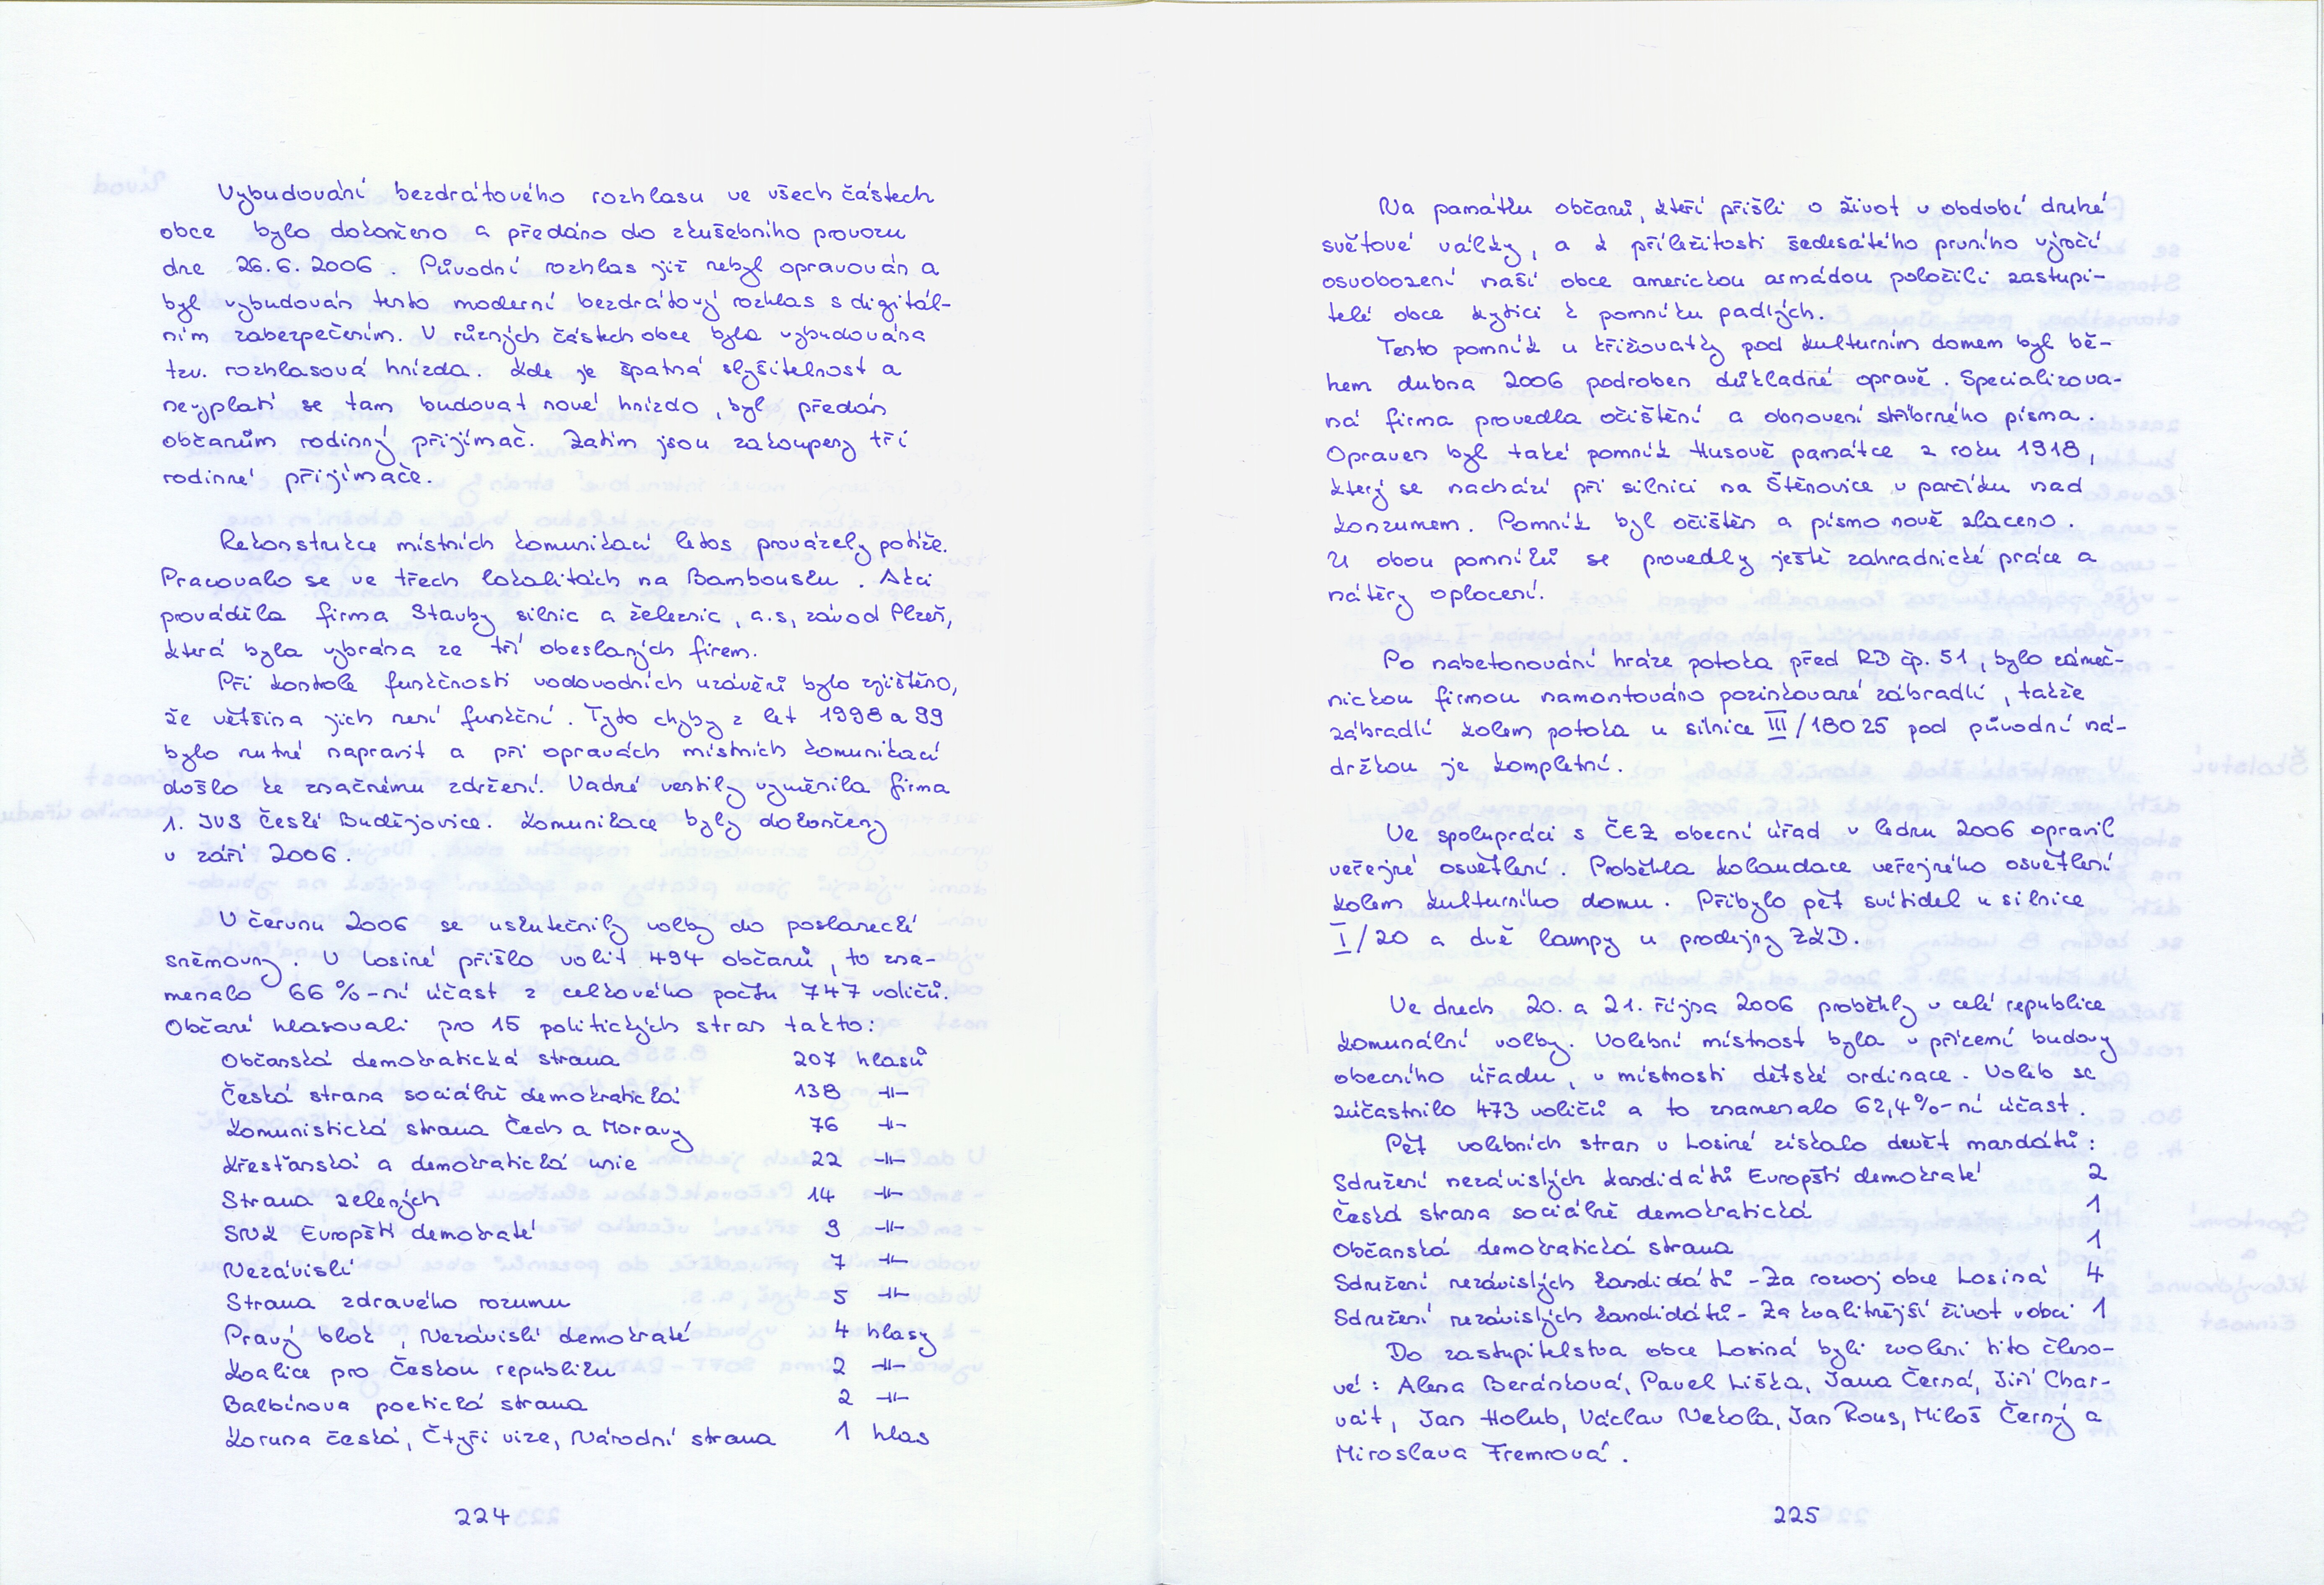 Vybudování bezdrátového rozhlasu ve všech částech
obce bylo dokončeno a předáno do zkušebního provozu
dne 26.6.2006. Původní rozhlas již nebyl opravován a
byl vybudován tento moderní bezdrátový rozhlas s digitál-
ním zabezpečením. V různých částech obce byla vybudována
tzv. rozhlasová hnízda. Kde je špatná slyšitelnost a
nevyplatí se tam budovat nové hnízdo, byl předán
občanům rodinný přijímač. Zatím jsou zakoupeny tři
rodinné přijímače.
Rekonstrukce místních komunikací letos provázely potíže.
Pracovalo se ve třech lokalitách na Bambousku. Akci
prováděla firma Stavby silnic a železnic, a.s, závod Plzeň,
která byla vybrána ze tří obeslaných firem.
Při kontrole funkčnosti vodovodních uzávěrů bylo zjištěno,
že většina jich není funkční. Tyto chyby z let 1998 a 99
bylo nutné napravit a při opravách místních komunikací
došlo ke značnému zdržení. Vadné ventily vyměnila firma
1. JVS České Budějovice. Komunikace byly dokončeny
v září 2006.
V červnu 2006 se uskutečnily volby do poslanecké
sněmovny. V Losiné přišlo volit 494 občanů, to zna-
menalo 66%-ní účast z celkového počtu 747 voličů.
Občané hlasovali pro 15 politických stran takto:
Občanská demokratická strana 207 hlasů
Česká strana sociálně demokratická 138 -||-
Komunistická strana Čech a Moravy 76 -||-
Křesťanská a demokratická unie 22 -||-
Strana zelených 14 -||-
SNK Evropští demokraté 9 -||-
Nezávislí 7 -||-
Strana zdravého rozumu 5 -||-
Pravý blok, Nezávislí demokraté 4 hlasy
Koalice pro Českou republiku 2 -||-
Balbínova poetická strana 2 -||-
Koruna česká, Čtyři vize, Národní strana 1 hlas
224
Na památku občanů, kteří přišli o život v období druhé
světové války, a k příležitosti šedesátého prvního výročí
osvobození naší obce americkou armádou položili zastupi-
telé obce kytici k pomníku padlých.
Tento pomník u křižovatky pod kulturním domem byl bě-
hem dubna 2006 podroben důkladné opravě. Specializova-
ná firma provedla očištění a obnovení stříbrného písma.
Opraven byl také pomník Husově památce z roku 1918,
který se nachází při silnici na Štěnovice v parčíku nad
konzumem. Pomník byl očištěn a písmo nově zlaceno.
U obou pomníků se provedly ještě zahradnické práce a
nátěry oplocení.
Po nabetonování hráze potoka před RD čp. 51, bylo zámeč-
nickou firmou namontováno pozinkované zábradlí, takže
zábradlí kolem potoka u silnice III/18025 pod původní ná-
držkou je kompletní.
Ve spolupráci s ČEZ obecní úřad v lednu 2006 opravil
veřejné osvětlení. Proběhla kolaudace veřejného osvětlení
kolem kulturního domu. Přibylo pět svítidel u silnice
I/20 a dvě lampy u prodejny ZKD.
Ve dnech 20. a 21. října 2006 proběhly v celé republice
komunální volby. Volební místnost byla v přízemí budovy
obecního úřadu, v místnosti dětské ordinace. Voleb se
zúčastnilo 473 voličů a to znamenalo 62,4%-ní účast.
Pět volebních stran v Losiné získalo devět mandátů:
Sdružení nezávislých kandidátů Evropští demokraté 2
Česká strana sociálně demokratická 1
Občanská demokratická strana 1
Sdružení nezávislých kandidátů - Za rozvoj obce Losiná 4
Sdružení nezávislých kandidátů - Za kvalitnější život v obci 1
Do zastupitelstva obce Losiná byli zvoleni tito členo-
vé: Alena Beránková, Pavel Liška, Jana Černá, Jiří Char-
vát, Jan Holub, Václav Nekola, Jan Rous, Miloš Černý a
Miroslava Fremrová.
225